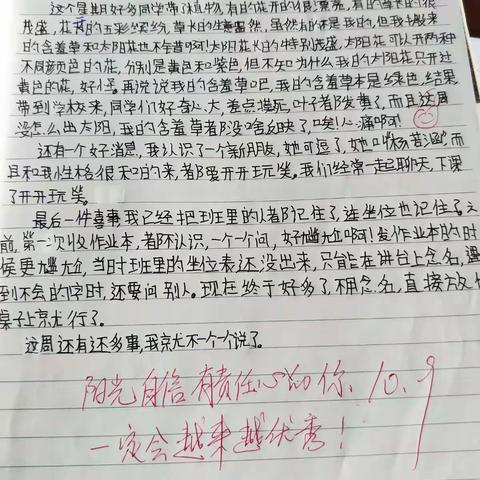 这个星期好多同学带了植物,有的花开的很漂亮,有的草长的很
茂盛,花的五彩缤纷,草长的生意盎然,虽然有的不是我的,但我带来
的含羞草和太阳花也不甘啊!太阳花长的特别茂盛,太阳花可以开两种
不同颜色的花,分别是黄色和紫色,但不知为什么我的太阳花只开过
黄色的花,好怪。再说说我的含羞草吧,我的含羞草本是绿色,结果
带到学校来,同学们好奇心大,差点摸死,叶子都发黄了,而且这周
没怎么出太阳,我的含羞草都没啥反映了,唉!心痛啊!
还有一个好消息,我认识了一个新朋友,她可逗了,她叫杨若涵,而
且和我性格很和的来,都爱开开玩笑。我们经常一起聊天,下课
了开开玩笑。
最后一件喜事,我已经把班里的人都记住了,连坐位也记住了,之
前,第一次收作业本,都不认识,一个一个问,好尴尬啊!发作业本的时
侯更尴尬,当时班里的坐位表还没出来,只能在讲台上念名,遇
到不会的字时,还要问别人。现在终于好多了,不用念名,直接放他
桌子上就行了。
这周还有还多事,我就不一个个说了。
阳光自信有责任心的你、10.9
一定会越来越优秀!